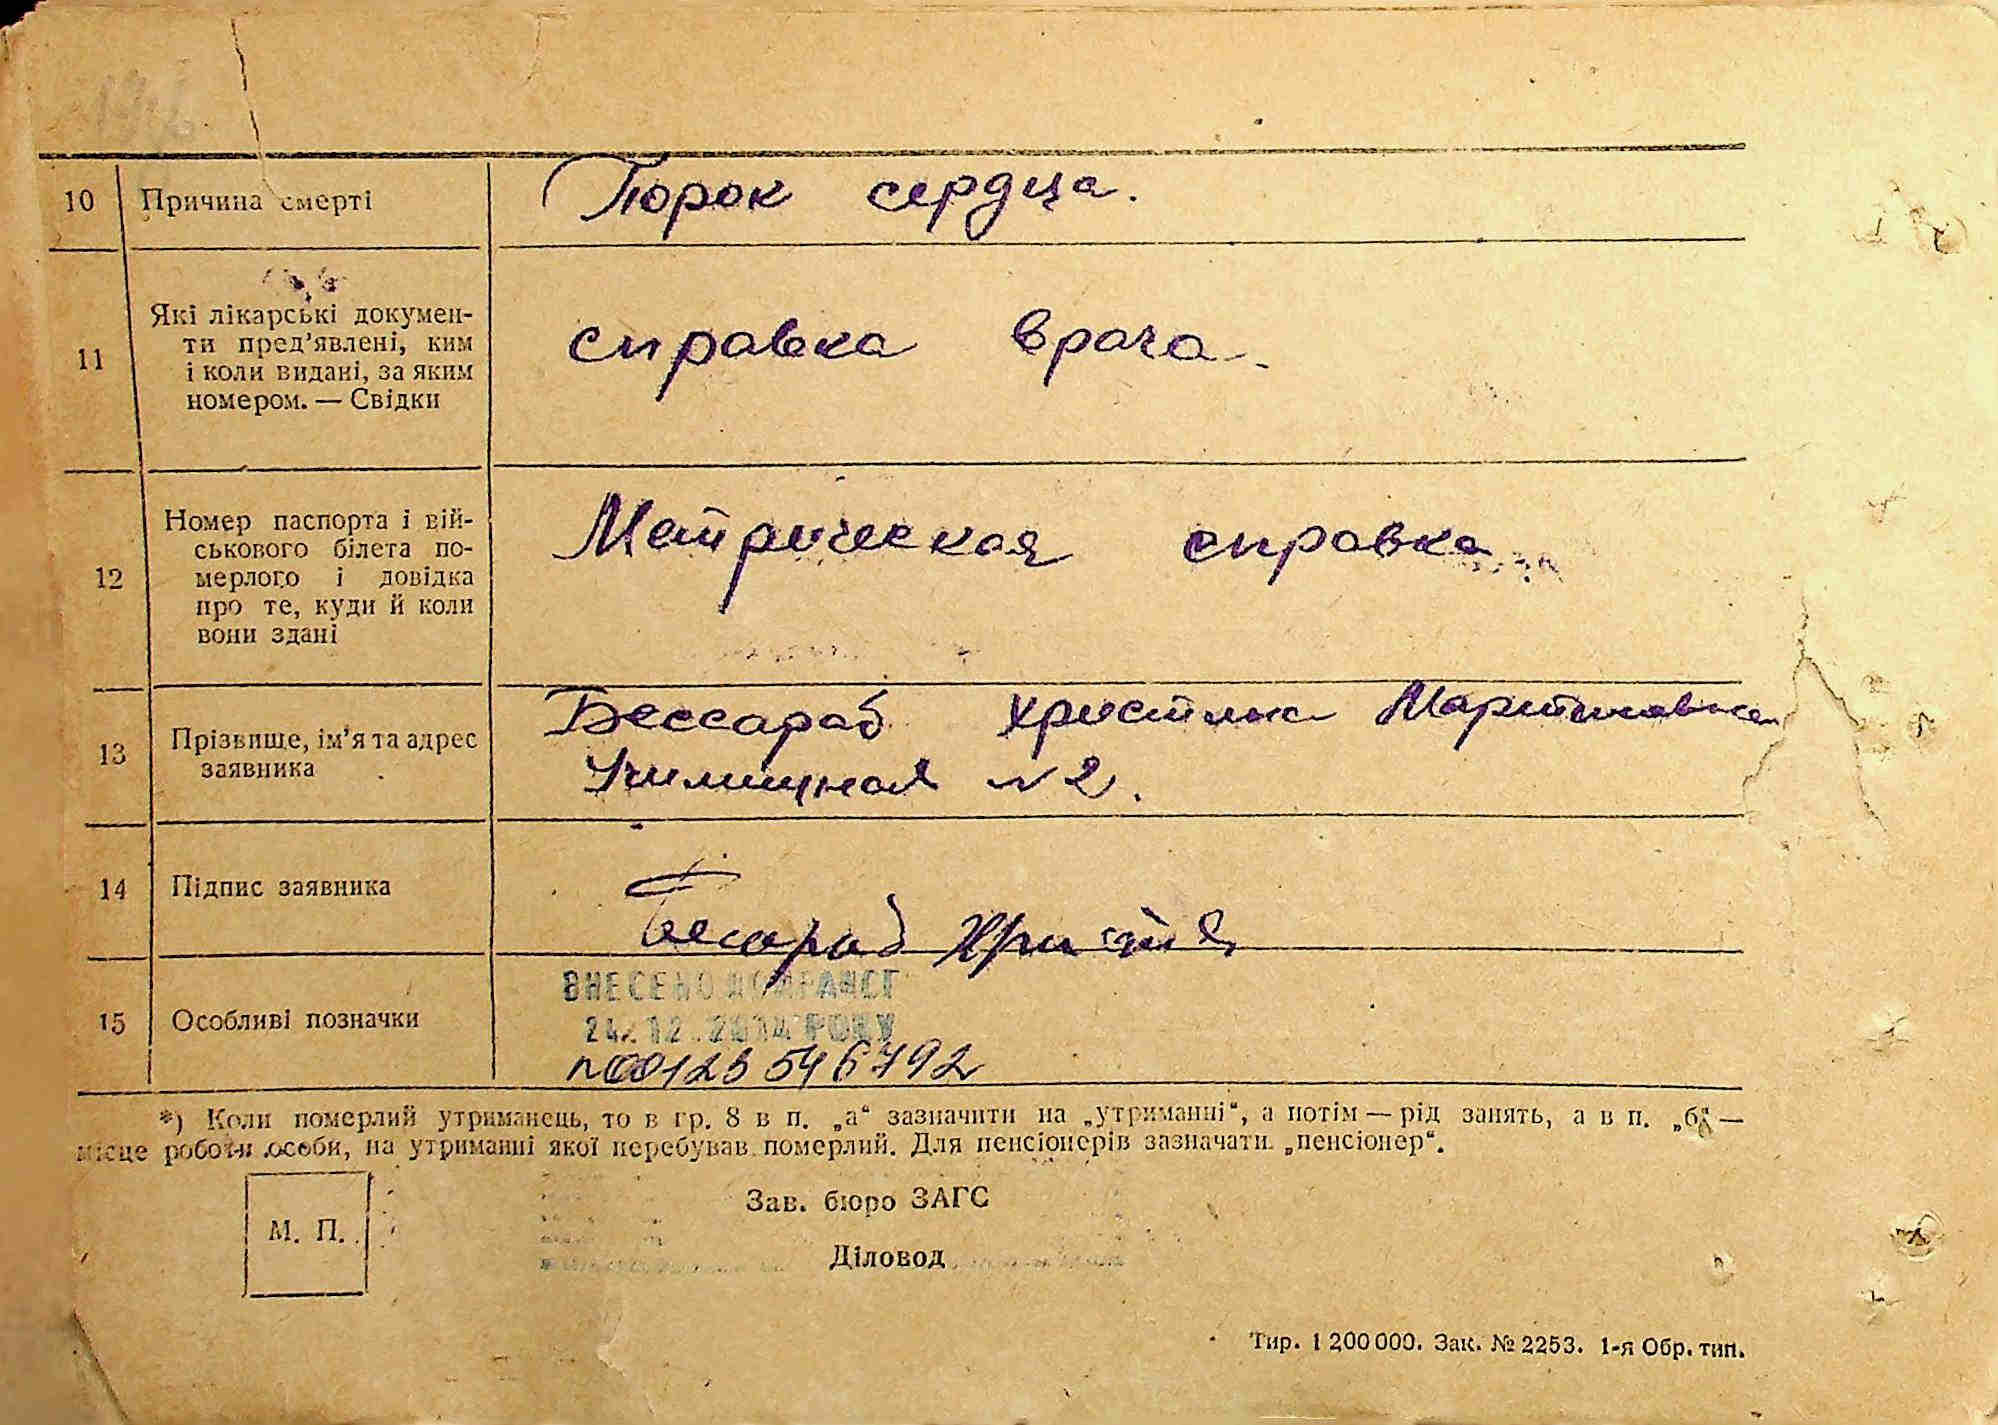 10 Причина смерті Порок сердца.
11 Які лікарські докумен-
ти пред’явлені, ким
і коли видані, за яким
номером. — Свідки
справка врача.
12 Номер паспорта і вій-
ськового білета по-
мерлого і довідка
про те, куди й коли
вони здані
Метрическая справка
13 Прізвище, ім’я та адрес
заявника
Бессараб Христина Мартиновна
Училищная №2.
14 Підпис заявника
Бесараб
15 Особливі позначки
ВНЕСЕНО ДО ДРАЦСГ
24.12.2014 РОКУ
N00123546792
*) Коли померлий утриманець, то в гр. 8 в п. „а“ зазначити на „утриманні“, а потім — рід занять, а в п. „б“ —
місце роботи особи, на утриманні якої перебував померлий. Для пенсіонерів зазначати „пенсіонер“.
М. П.
Зав. бюро ЗАГС
Діловод
Тир. 1 200 000. Зак. № 2253. 1-я Обр. тип.